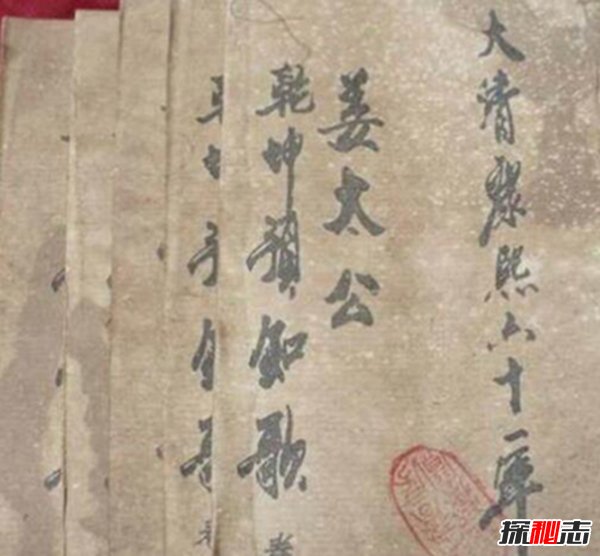 大清康熙六十一年
姜太公
乾坤預知歌
卷
探秘志